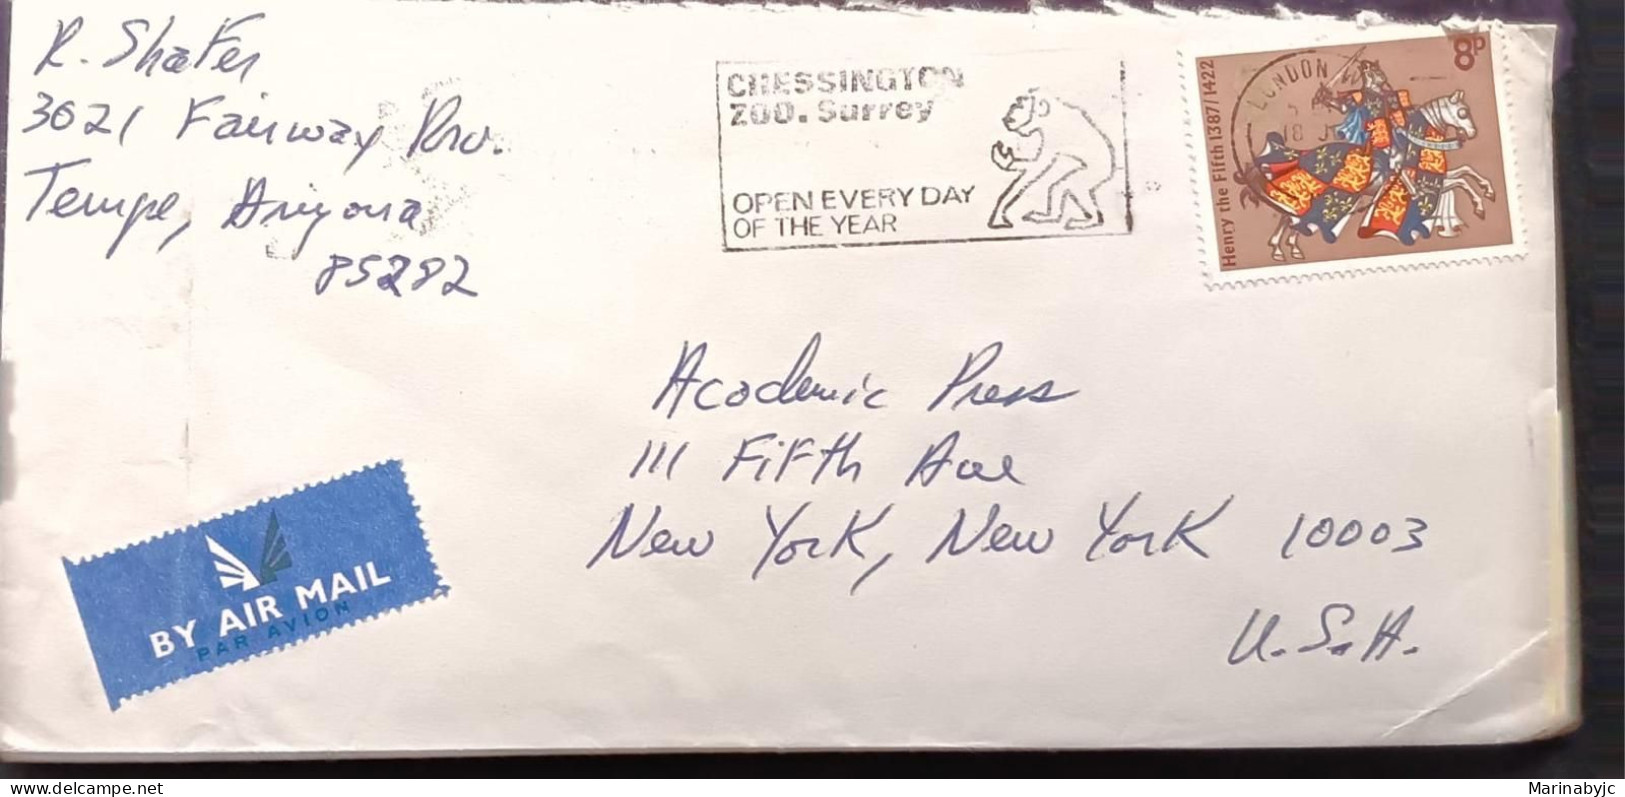 R. Shafer
3021 Fairway Drv.
Tempe, Arizona
85282
CHESSINGTON
ZOO. Surrey
OPEN EVERY DAY
OF THE YEAR
8P
Henry the Fifth 1387/1422
LONDON
18
Academic Press
111 Fifth Ave
New York, New York 10003
U.S.A.
BY AIR MAIL
PAR AVION
Marinabyjc